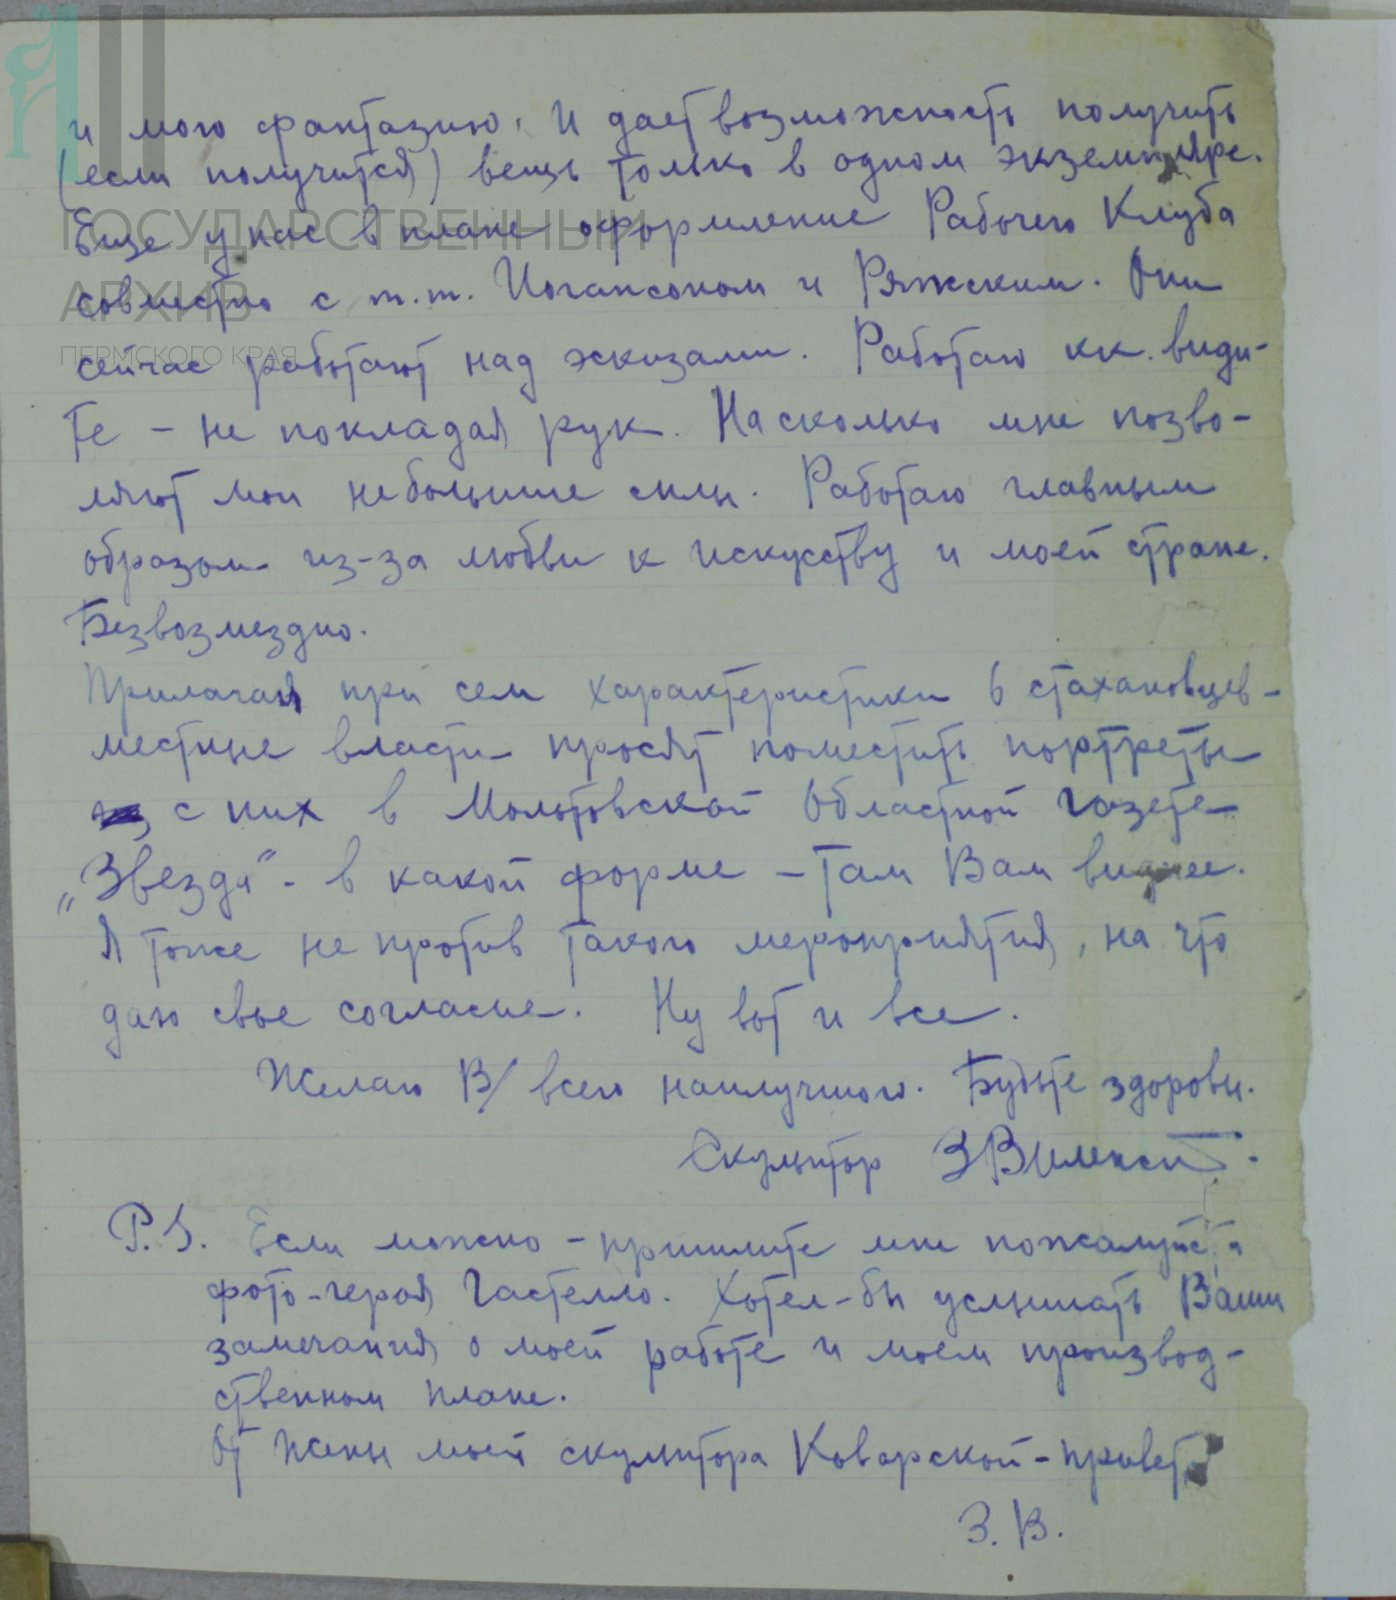 и мою фантазию. И дает возможность получить
(если получится) вещь только в одном экземпляре.
ГОСУДАРСТВЕННЫЙ
Еще у нас в плане оформление Рабочего Клуба
АРХИВ
совместно с т.т. Иогансоном и Ряжским. Они
ПЕРМСКОГО КРАЯ
сейчас работают над эскизами. Работаю кк. види-
те – не покладая рук. Насколько мне позво-
ляют мои небольшие силы. Работаю главным
образом из-за любви к искусству и моей стране.
Безвозмездно.
Прилагая при сем характеристики 6 стахановцев –
местные власти просят поместить портреты
с них в Молотовской Областной газете
„Звезда" - в какой форме – там Вам виднее.
Я тоже не против такого мероприятия, на что
даю свое согласие. Ну вот и все.
Желаю В/ всего наилучшего. Будьте здоровы.
Скульптор ЗВиленский.
P.S. Если можно – пришлите мне пожалуйста
фото-героя Гастелло. Хотел-бы услышать Ваши
замечания о моей работе и моем производ-
ственном плане.
От жены моей скульптора Коварской – привет
З. В.